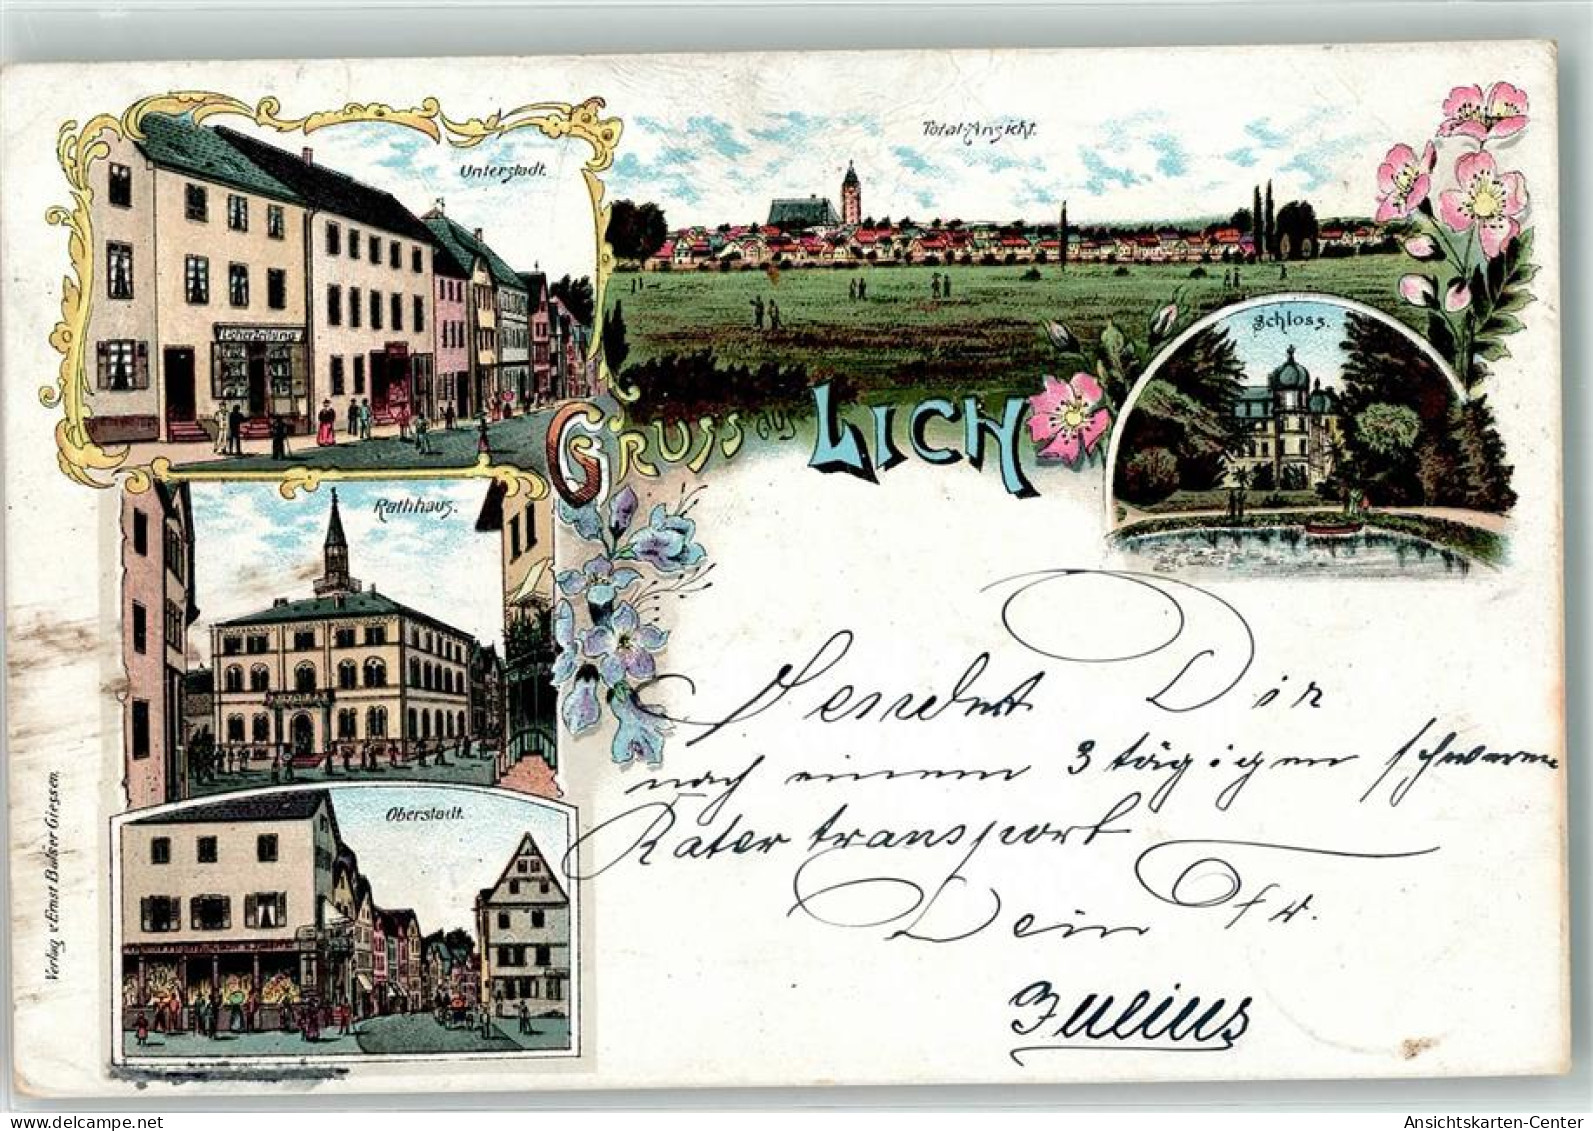 Unterstadt.
Total-Ansicht.
Schloss.
Licher Zeitung
GRUSS aus LICH
Rathhaus.
Oberstadt.
Verlag v. Ernst Balser Giessen.
Sendet Dir
nach einem 3 tägigen schweren
Katertransport
Dein Fr.
Julius
Ansichtskarten-Center